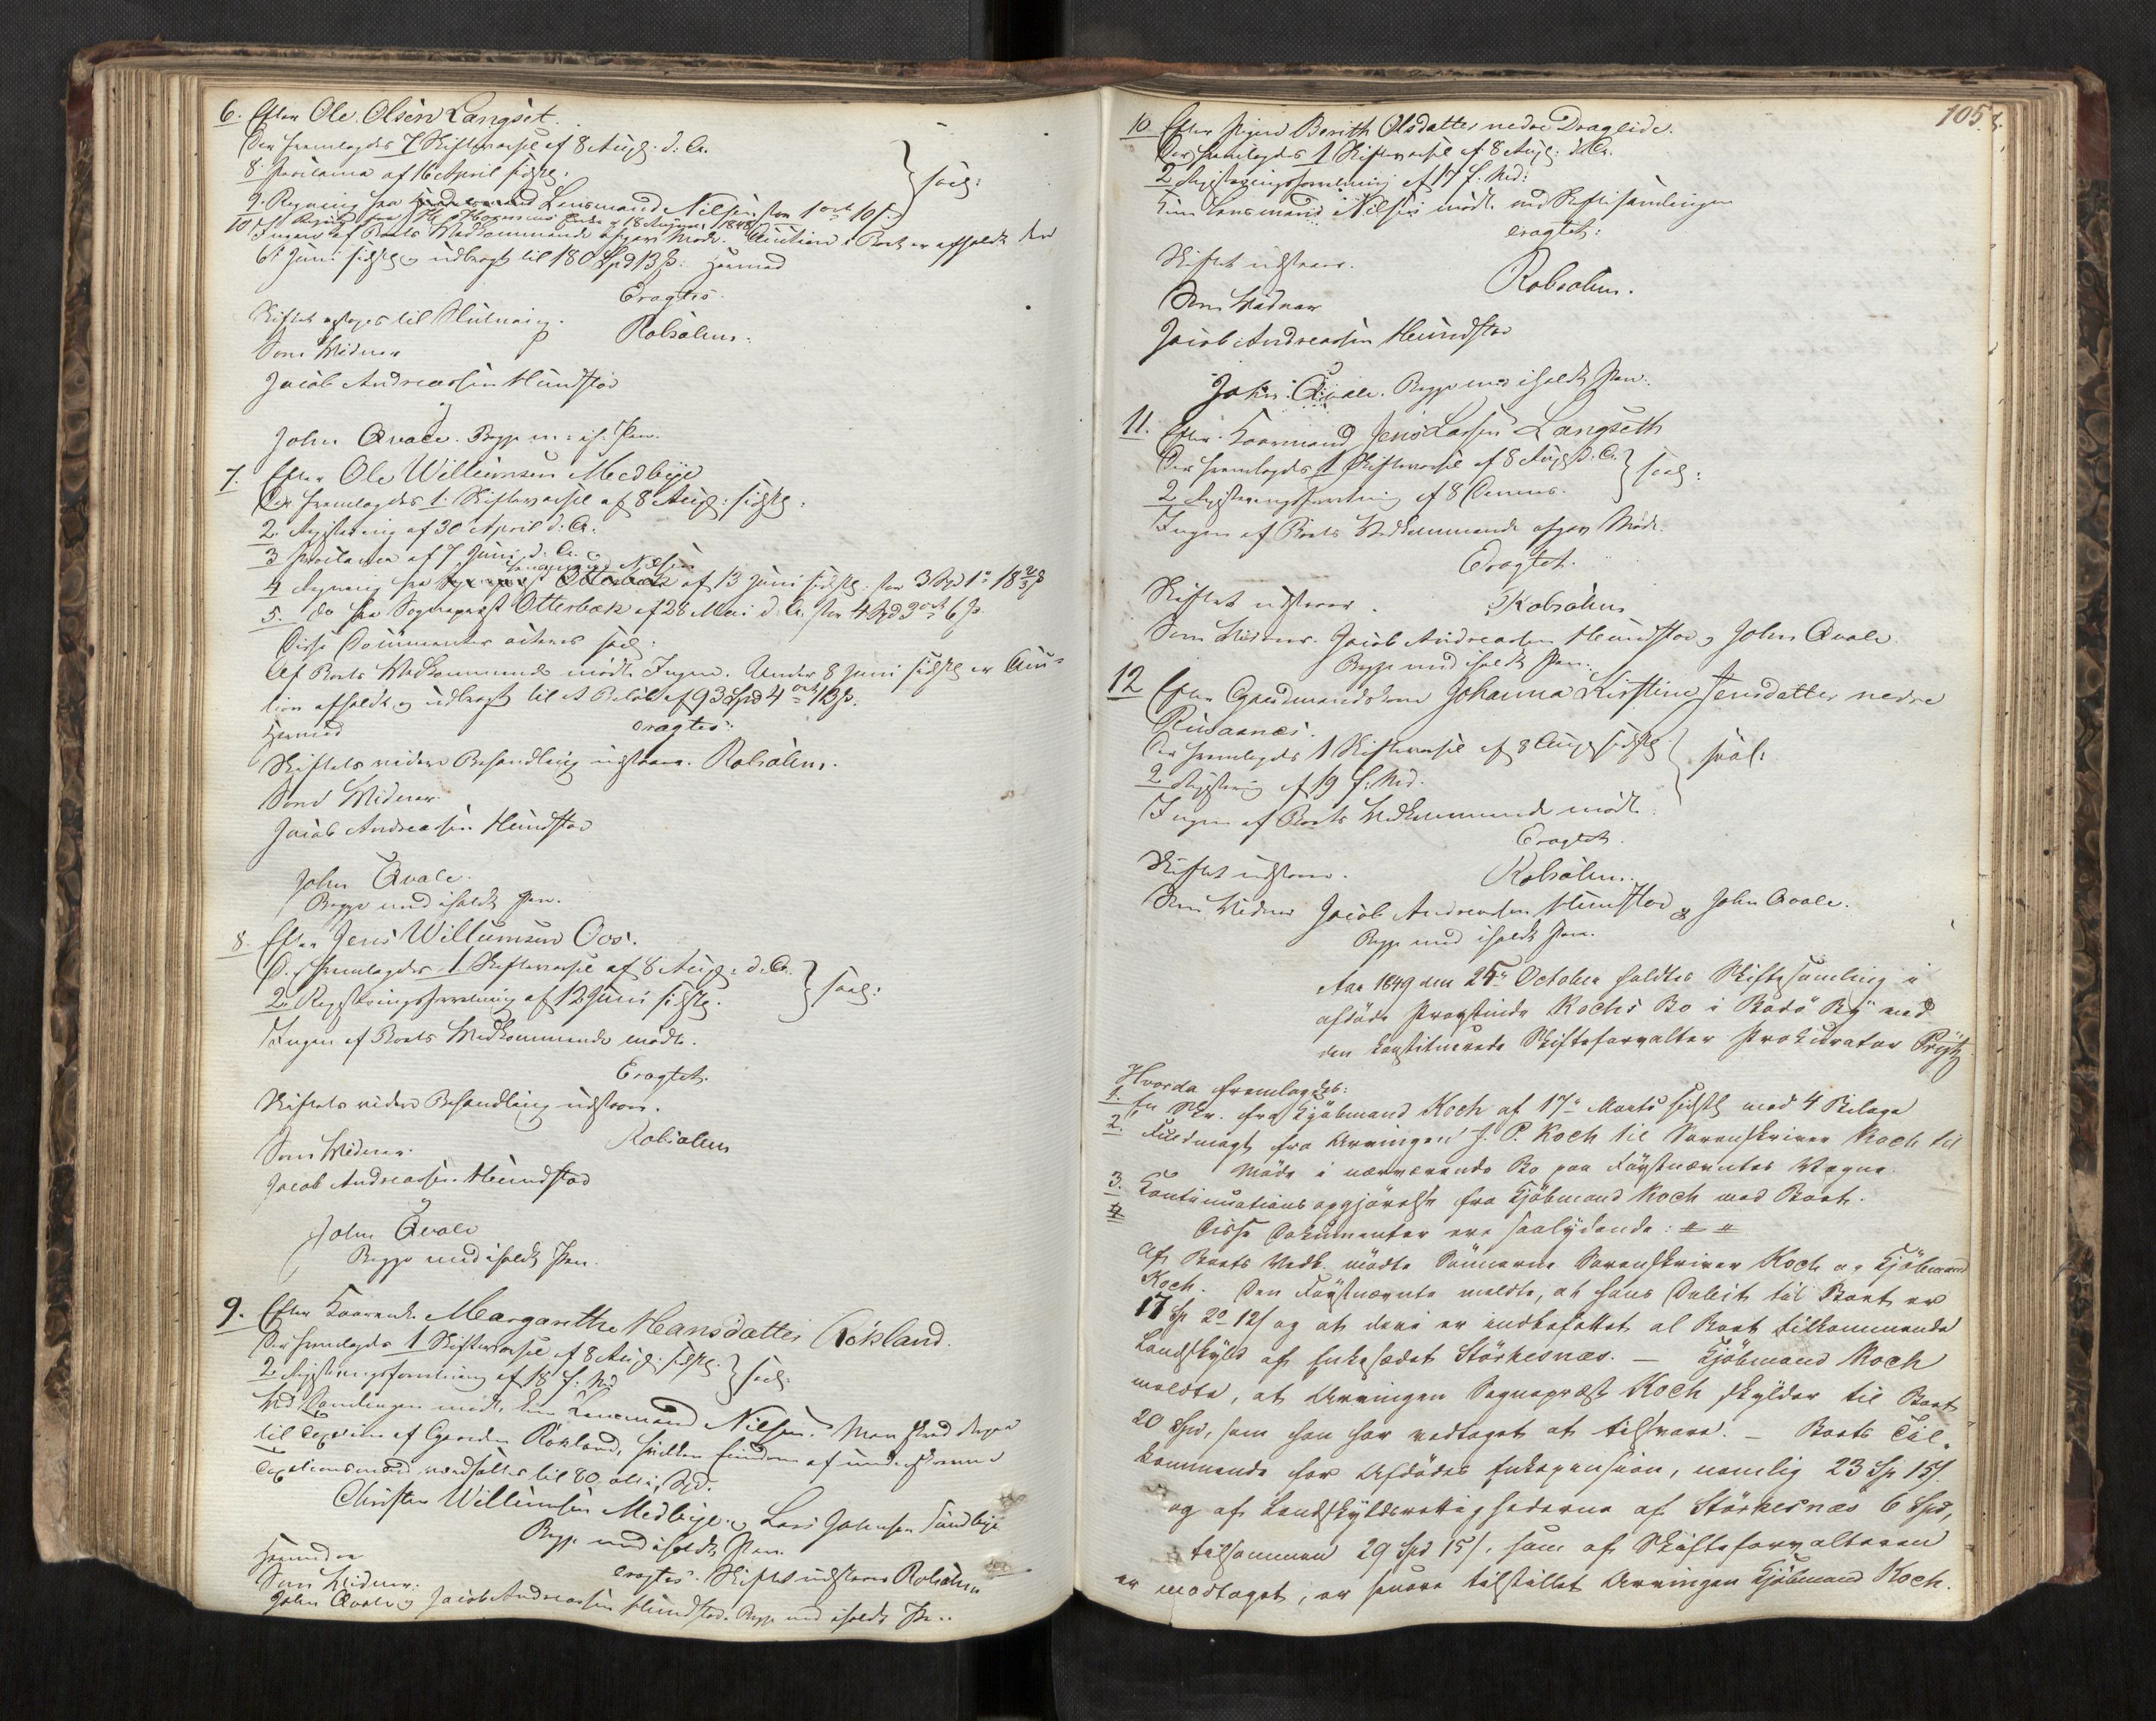 6. Efter Ole Olsen Langset.
Der fremlagdes 7 Skiftevarsel af 8 Aug: d: A.
8 Proclama af 16 April sidstl.
9. Regning fra Lensmand Nilsen stor 1 ort 10 s.
} saal:
10 Regning fra 18 August 1849
Ingen af Boets Vedkommende afgav Møde. Auction i Boet er afholdt den
6te Juni sidstl. og udbragt til 180 Spd 13 s. Hermed
Eragtes
Skiftet optages til Slutning.
Robsahm.
Som Vidner
Jacob Andreassen Hundstad
John Qvale. Begge m: ih: Pen.
7. Efter Ole Willumsen Medbye
Der fremlagdes 1. Skiftevarsel af 8 Aug: sidstl.
2. Registrering af 30 April d. A.
3 Proclama af 7 Juni d. A.
4 Regning fra Lensmand Nilsen af 13 Juni sidstl. stor 3 Spd 1 ort 18 2/3 s
5. do fra Sognepræst Otterbech af 28 Mai d. A. stor 4 Spd 3 ort 6 s.
Disse Documenter acteres saal.
Af Boets Vedkommende mødte Ingen. Under 8 Juni sidstl. er Auc=
tion afholdt og udbragt til et Beløb af 93 Spd 4 ort 13 s.
Hermed
eragtes
Skiftets videre Behandling udstaaer. Robsahm.
Som Vidner
Jacob Andreassen Hundstad
John Qvale.
Begge med iholdt Pen.
8. Efter Jens Willumsen Oos.
Der fremlagdes 1. Skiftevarsel af 8 Aug: d. A.
2. Registreringsforretning af 12 Juni sidstl.
} saal:
Ingen af Boets Vedkommende mødte.
Eragtet.
Skiftets videre Behandling udstaaer.
Robsahm
Som Vidner
Jacob Andreassen Hundstad
John Qvale
Begge med iholdt Pen.
9. Efter Kaarenke Margarethe Hansdatter Røkland.
Der fremlagdes 1 Skiftevarsel af 8 Aug: sidstl.
2. Registreringsforretning af 18 f: Md
} saal:
Ved Samlingen mødte kun Lensmand Nilsen. Man skred derpaa
til Taxation af Gaarden Røkland, hvilken Eiendom af undertegnede
Taxationsmænd værdsattes til 80, otti, Spd.
Christen Willumsen Medbye og Lars Johnsen Sundbye
Begge med iholdt Pen.
Herunder
eragtes Skiftet udstaaer Robsahm
Som Vidner:
John Qvale og Jacob Andreassen Hundstad. Begge med iholdt Pen.
105.
10. Efter Pigen Berith Olsdatter nedre Drageide.
Der fremlagdes 1 Skiftevarsel af 8 Aug: d. A.
2 Registreringsforretning af 17 f. Md:
Kun Lensmand Nilsen mødte ved Skiftesamlingen
eragtet:
Skiftet udstaaer.
Robsahm.
Som Vidner
Jacob Andreassen Hundstad
John Qvale. Begge med iholdt Pen.
11. Efter Kaarmand Jens Larsen Langseth
Der fremlagdes 1 Skiftevarsel af 8 Aug: d. A.
2 Registreringsforretning af 8 Dennes.
} saal:
Ingen af Boets Vedkommende afgav Møde.
Eragtet.
Skiftet udstaaer.
Robsahm
Som Vidner. Jacob Andreassen Hundstad og John Qvale
Begge med iholdt Pen.
12 Efter Gaardmandskone Johanna Kirstine Jensdatter nedre
Rusaanes.
Der fremlagdes 1 Skiftevarsel af 8 Aug: sidstl.
2 Registrering af 19 f: Md.
} saal:
Ingen af Boets Vedkommende mødte.
Eragtet.
Skiftet udstaaer.
Robsahm.
Som Vidner Jacob Andreassen Hundstad & John Qvale.
Begge med iholdt Pen.
Aar 1849 den 25de October holdtes Skiftesamling i
afdøde Provstinde Kochs Bo i Bodø By ved
den konstituerede Skifteforvalter Prokurator Prytz
Hvorda fremlagdes:
1. En Skr. fra Kjøbmand Koch af 17de Marts sidstl med 4 Bilage
2. Fuldmagt fra Arvingen J. P. Koch til Sorenskriver Koch til
Møde i nærværende Bo paa Førstnævntes Vegne.
3. Continuationsopgjørelse fra Kjøbmand Koch med Boet.
4
Disse Dokumenter ere saalydende: # #
Af Boets Vedk. mødte Sønnerne Sorenskriver Koch og Kjøbmand
Koch. Den Førstnævnte meldte, at hans Debit til Boet er
17 Sp 2 o 12 s og at deri er indbefattet al Boet tilkommende
Landskyld af Enkesædet Størkesnæs. — Kjøbmand Koch
meldte, at Arvingen Sognepræst Koch skylder til Boet
20 Spd, som han har vedtaget at tilsvare. — Boets Til-
kommende for Afdødes Enkepension, nemlig 23 Sp 15 s.
og af Landskyldsrettighederne af Størkesnæs 6 Spd,
tilsammen 29 Spd 15 s, som af Skifteforvalteren
er modtaget, er senere tilstillet Arvingen Kjøbmand Koch.